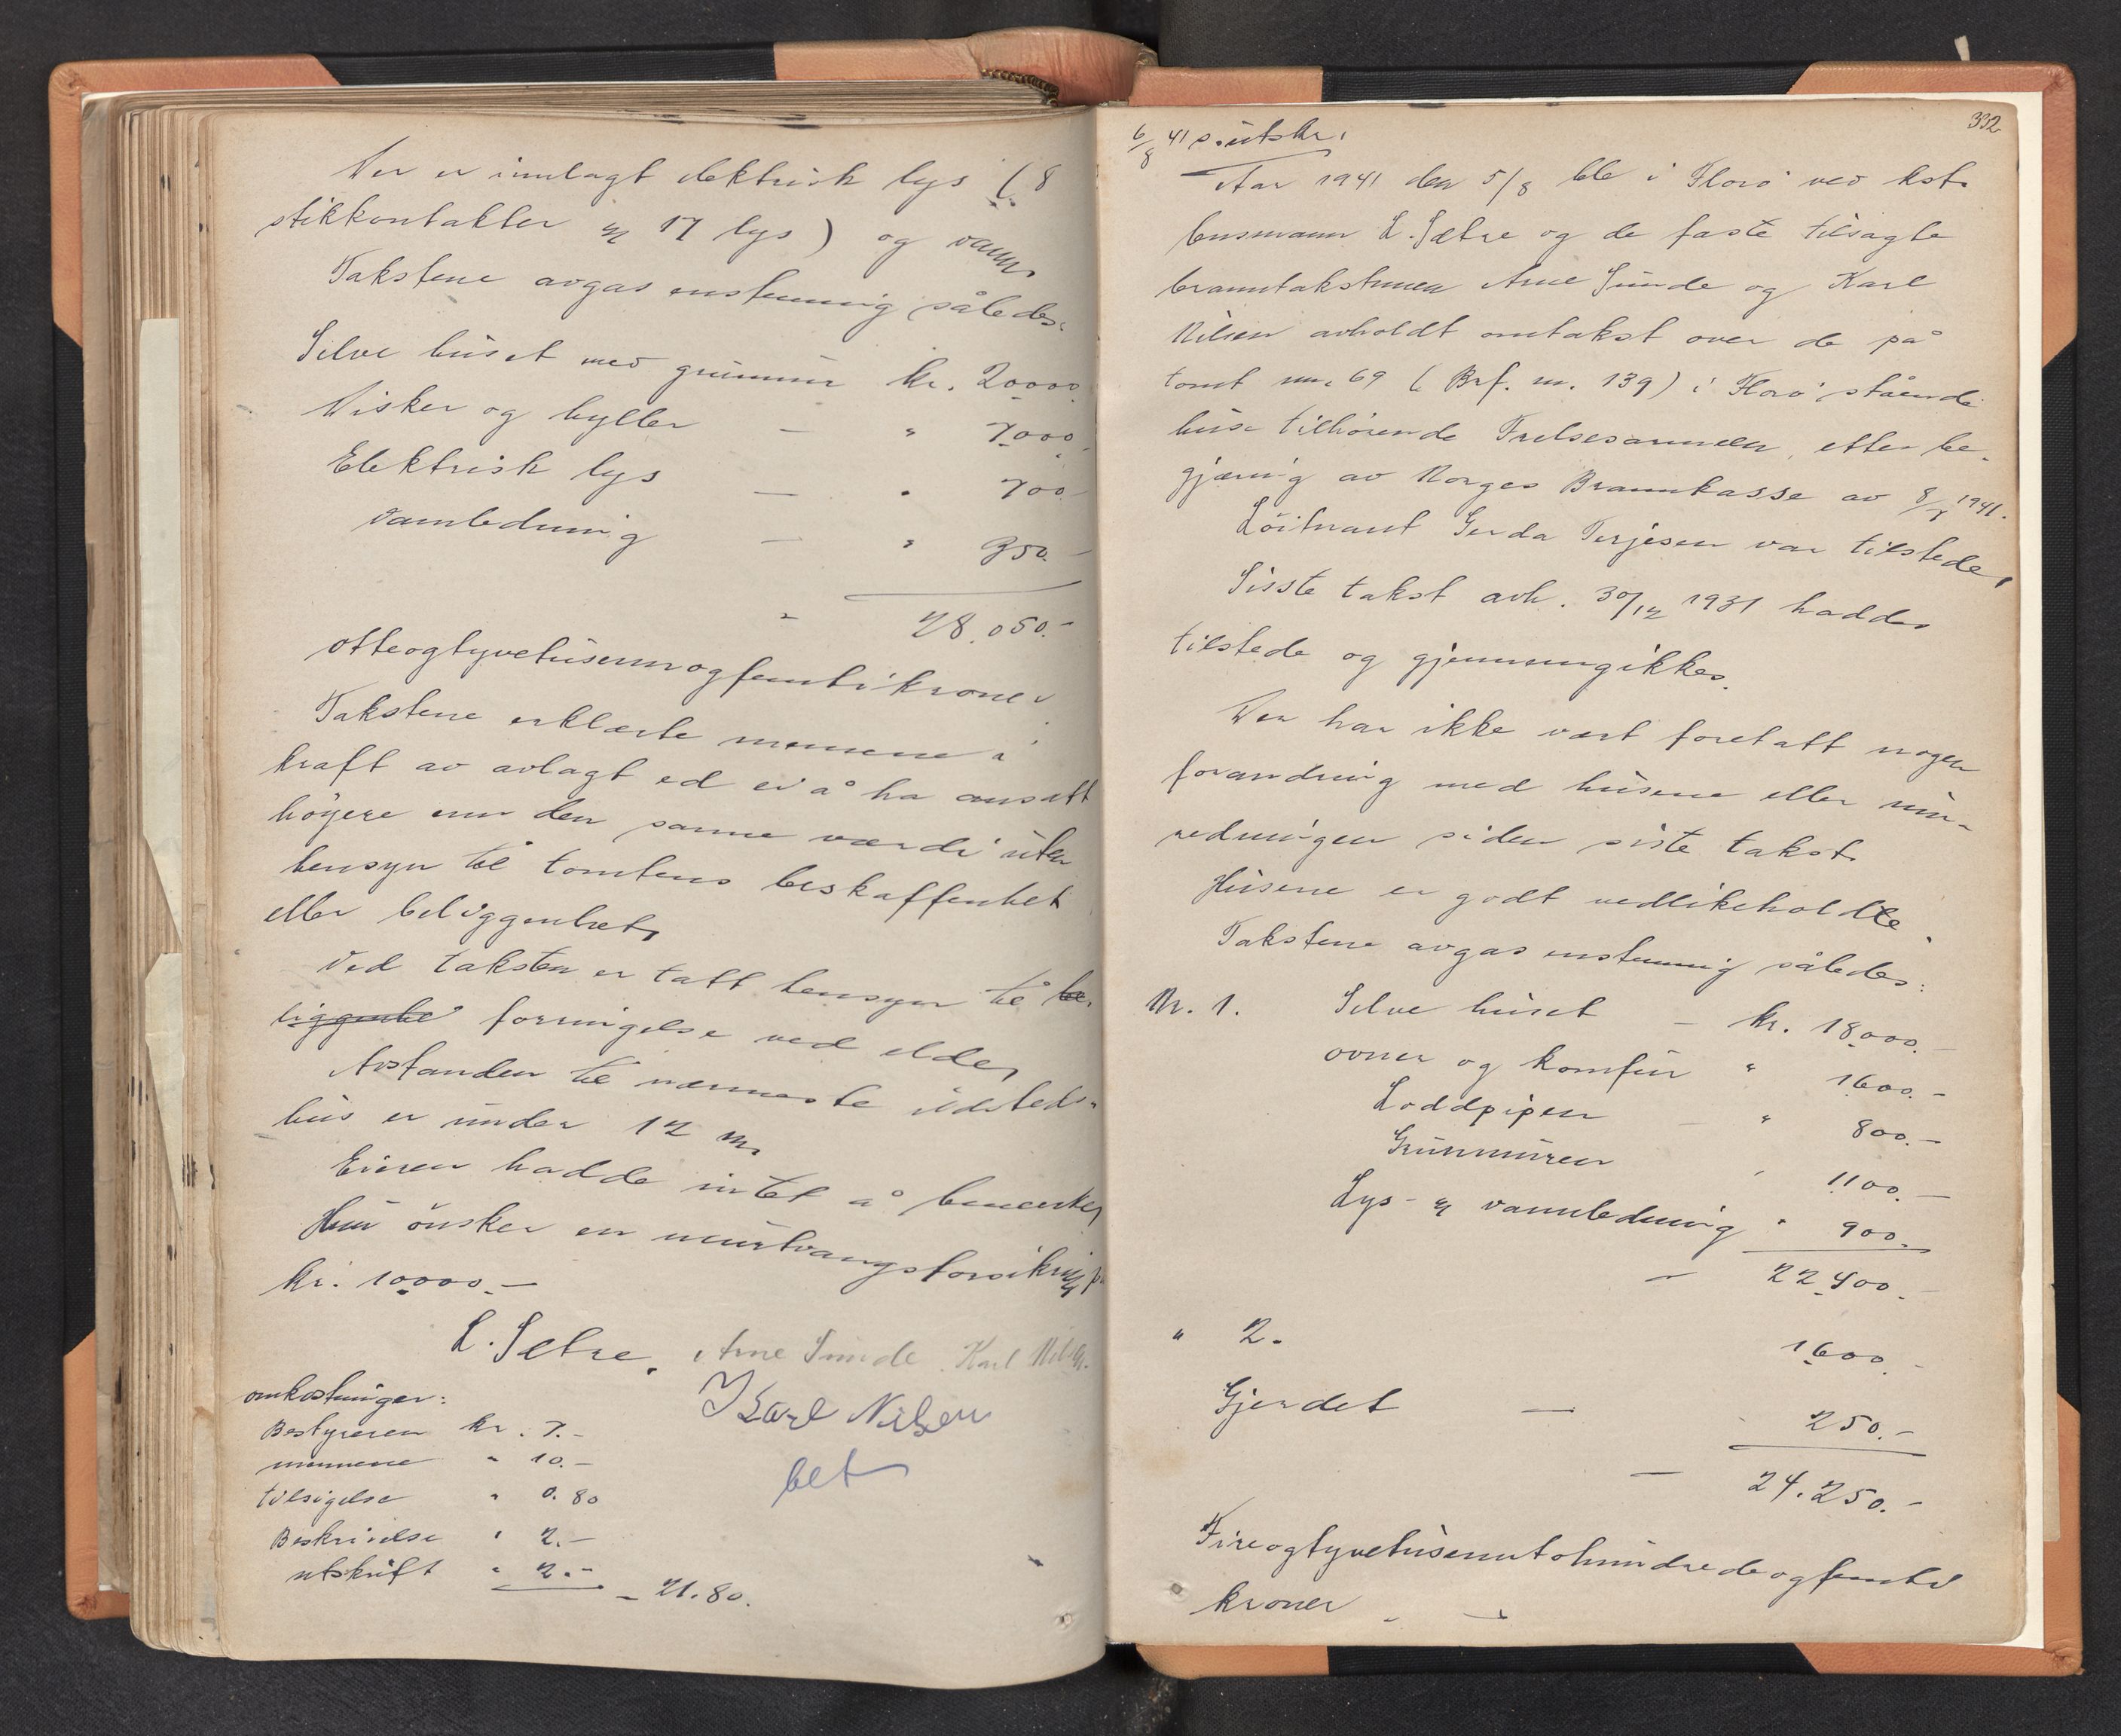 Der er innlagt elektrisk lys (8
stikkontakter og 17 lys) og vann.
Takstene avgas enstemmig således:
Selve huset med grunnmur kr. 20000.
Disker og hyller — " 7000.-
Elektrisk lys — " 700.-
Vannledning — " 350.-
" 28.050.-
otteogtyvetusenogfemtikroner.
Takstene erklærte mennene i
kraft av avlagt ed ei å ha ansatt
høyere enn den sanne værdi uten
hensyn til tomtens beskaffenhet
eller beliggenhet.
Ved taksten er tatt hensyn til be-
liggenhe forringelse ved elde.
Avstanden til nærmeste ildsteds-
hus er under 12 m.
Eieren hadde intet å bemerke,
Hun ønsker en murtvangsforsikring på
kr. 10000.—
L. Sætre. Arne Sunde. Karl Nilsen.
Karl Nilsen
bet
omkostninger:
Bestyreren kr. 7.-
mennene " 10.-
tilsigelse " 0.80
Beskrivelse " 2.-
utskrift " 2.-
- 21.80.
332
6/8 41 s. utskr.
Aar 1941 den 5/8 ble i Florø ved kst.
lensmann L. Sætre og de faste tilsagte
branntakstmenn Arne Sunde og Karl
Nilsen avholdt omtakst over de på
tomt nr. 69 (Brf. nr. 139) i Florø stående
huse tilhørende Frelsesarmeen, etter be-
gjæring av Norges Brannkasse av 8/7 1941.
Løitnant Gerda Terjesen var tilstede,
Sisste takst avh. 30/12 1931 haddes
tilstede og gjennemgikkes.
Der har ikke vært foretatt nogen
forandring med husene eller inn-
redningen siden siste takst.
Husene er godt vedlikeholdte.
Takstene avgas enstemmig således:
Nr. 1. Selve huset — kr. 18000.-
ovner og komfur " 1600.-
Loddpipen — " 800.-
Grunnmuren " 1100.-
Lys- og vannledning " 900.-
— 22400.-
" 2. 1600.-
Gjerdet — 250.-
— 24.250.-
Fireogtyvetusentohundredeogfemti
kroner. —